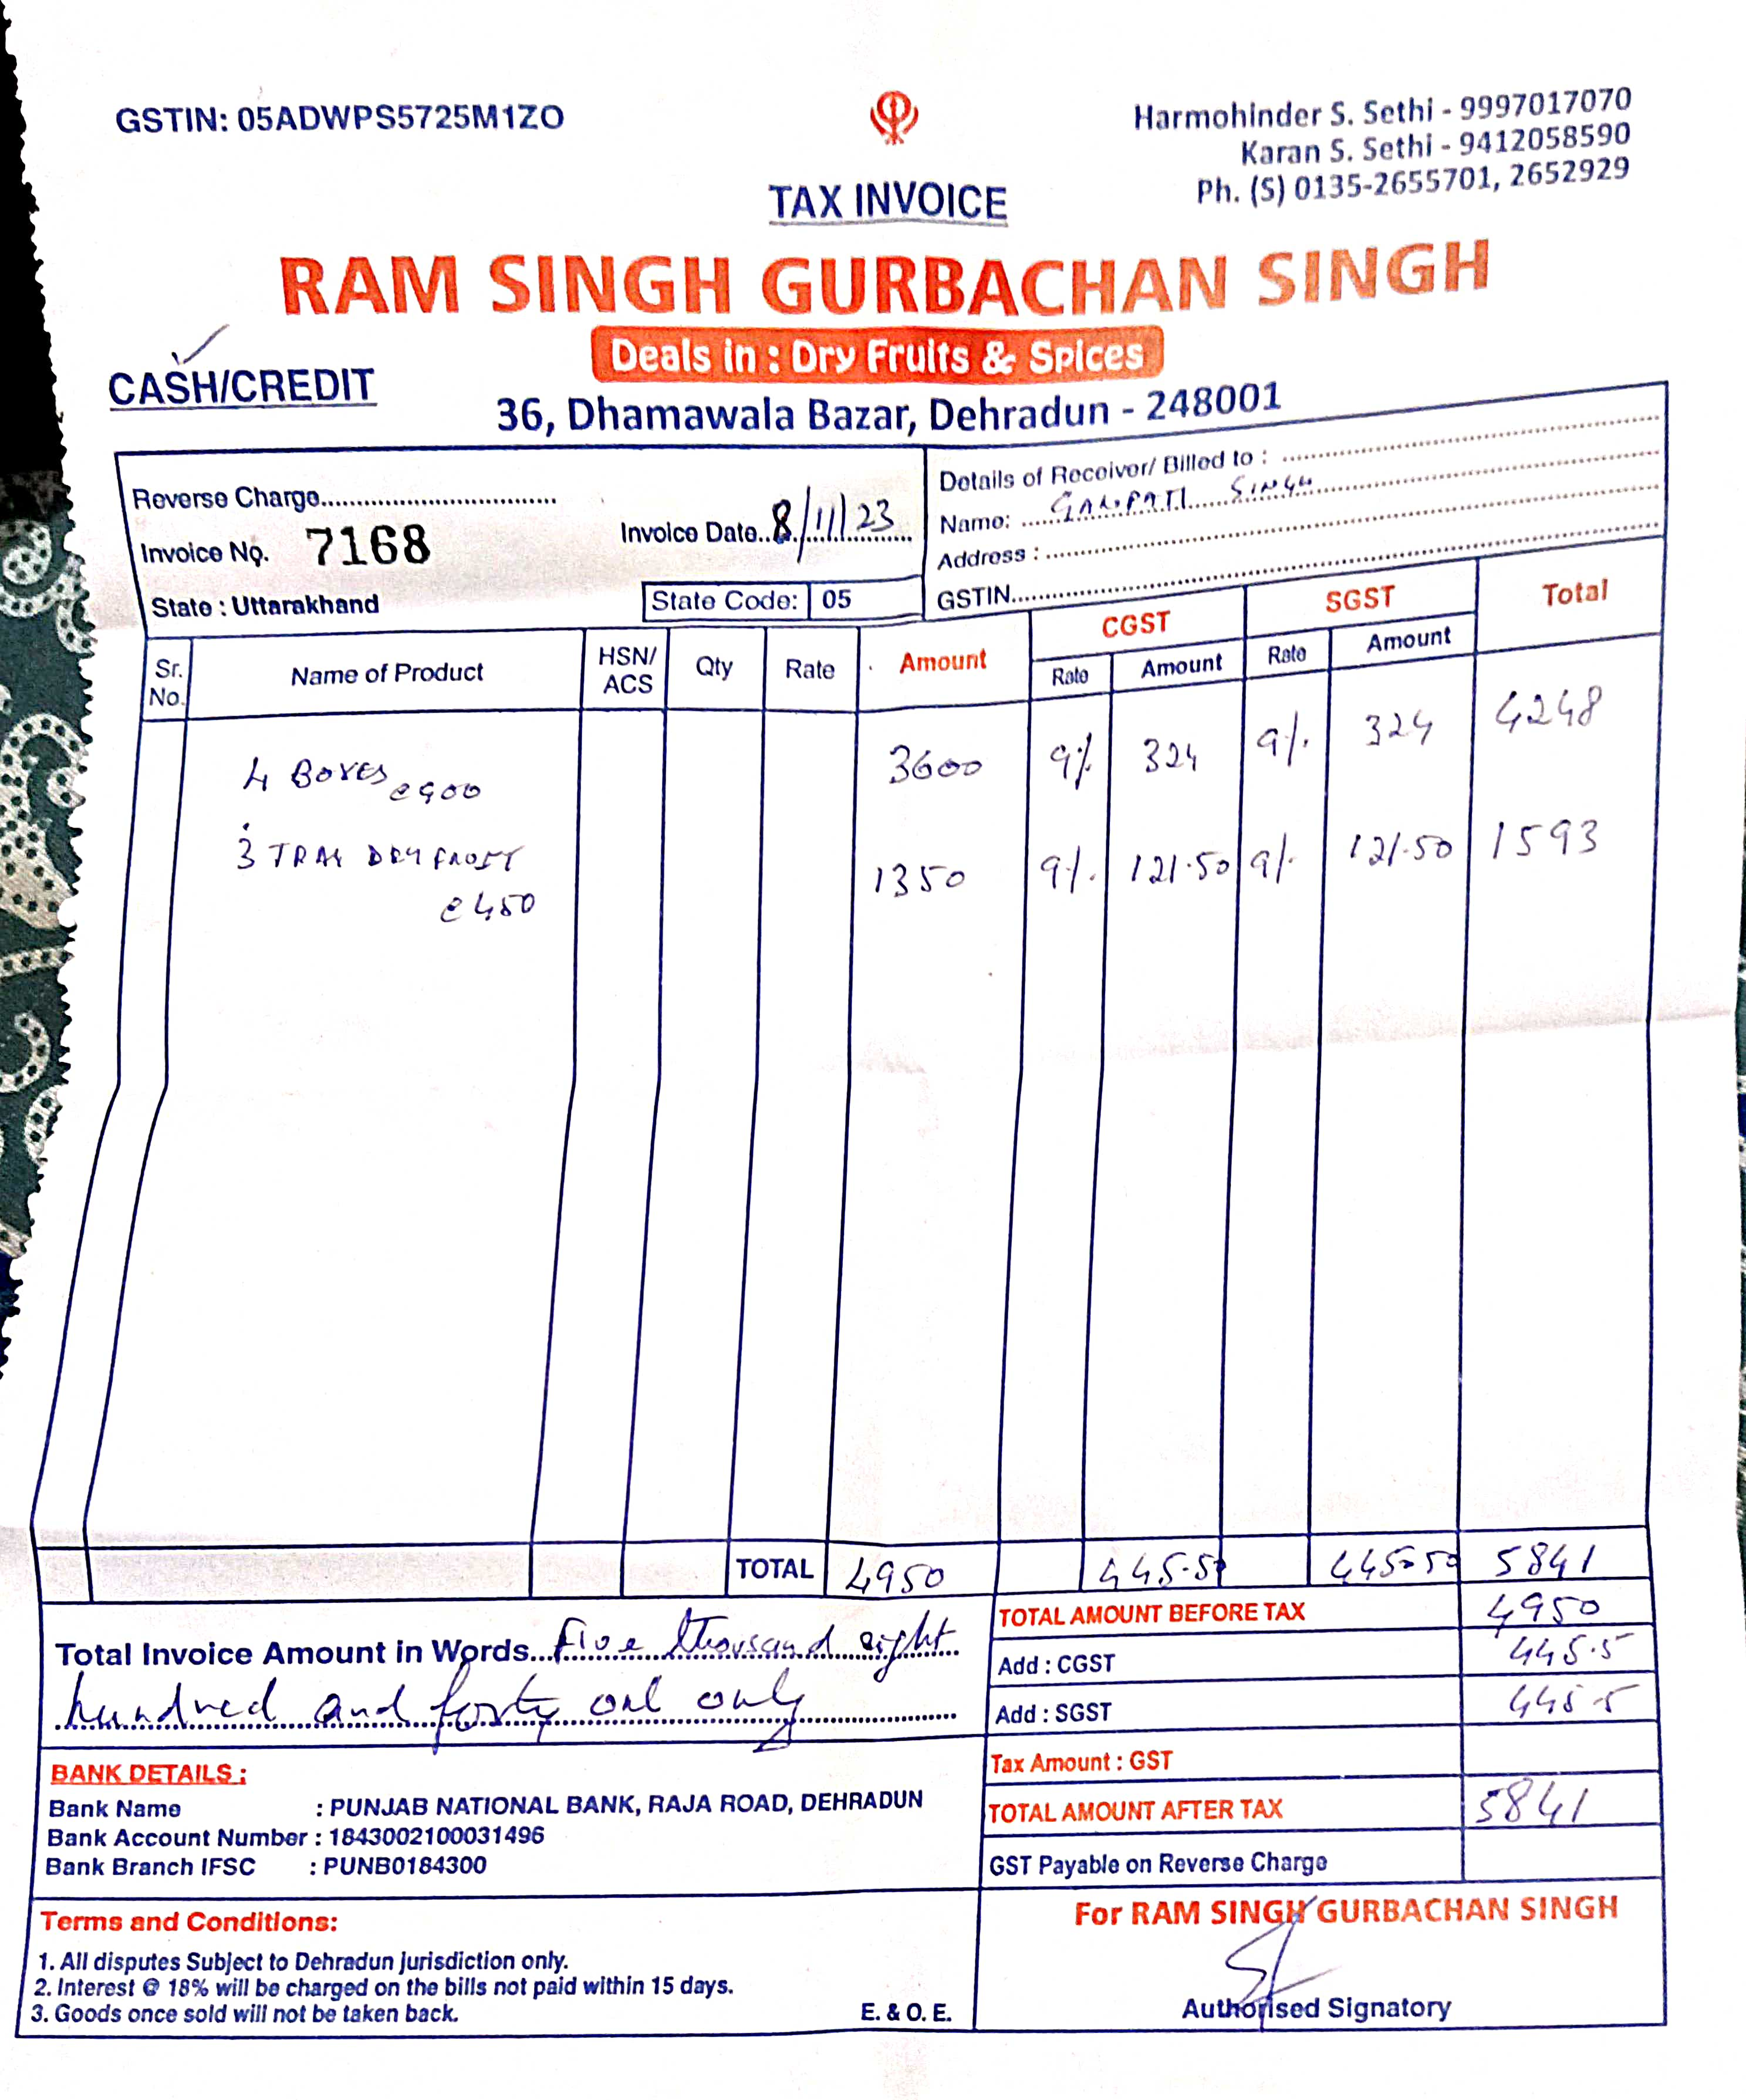 GSTIN: 05ADWPS5725M1ZO
Harmohinder S. Sethi - 9997017070
Karan S. Sethi - 9412058590
Ph. (S) 0135-2655701, 2652929
TAX INVOICE
RAM SINGH GURBACHAN SINGH
Deals in : Dry Fruits & Spices
CASH/CREDIT
36, Dhamawala Bazar, Dehradun - 248001
Reverse Charge
Invoice No. 7168 Invoice Date 8/11/23
State : Uttarakhand State Code: 05
Details of Receiver/ Billed to :
Name: GANPATI SINGH
Address :
GSTIN
Sr. No. Name of Product HSN/ ACS Qty Rate Amount CGST Rate Amount SGST Rate Amount Total
4 BOXES @900 3600 9% 324 9% 324 4248
3 TRAY DRY FRUIT @450 1350 9% 121.50 9% 121.50 1593
TOTAL 4950 445.50 445.50 5841
Total Invoice Amount in Words Five thousand eight
hundred and forty one only
TOTAL AMOUNT BEFORE TAX 4950
Add : CGST 445.5
Add : SGST 445.5
Tax Amount : GST
TOTAL AMOUNT AFTER TAX 5841
GST Payable on Reverse Charge
BANK DETAILS :
Bank Name : PUNJAB NATIONAL BANK, RAJA ROAD, DEHRADUN
Bank Account Number : 1843002100031496
Bank Branch IFSC : PUNB0184300
Terms and Conditions:
1. All disputes Subject to Dehradun jurisdiction only.
2. Interest @ 18% will be charged on the bills not paid within 15 days.
3. Goods once sold will not be taken back.
E. & O. E.
For RAM SINGH GURBACHAN SINGH
Authorised Signatory